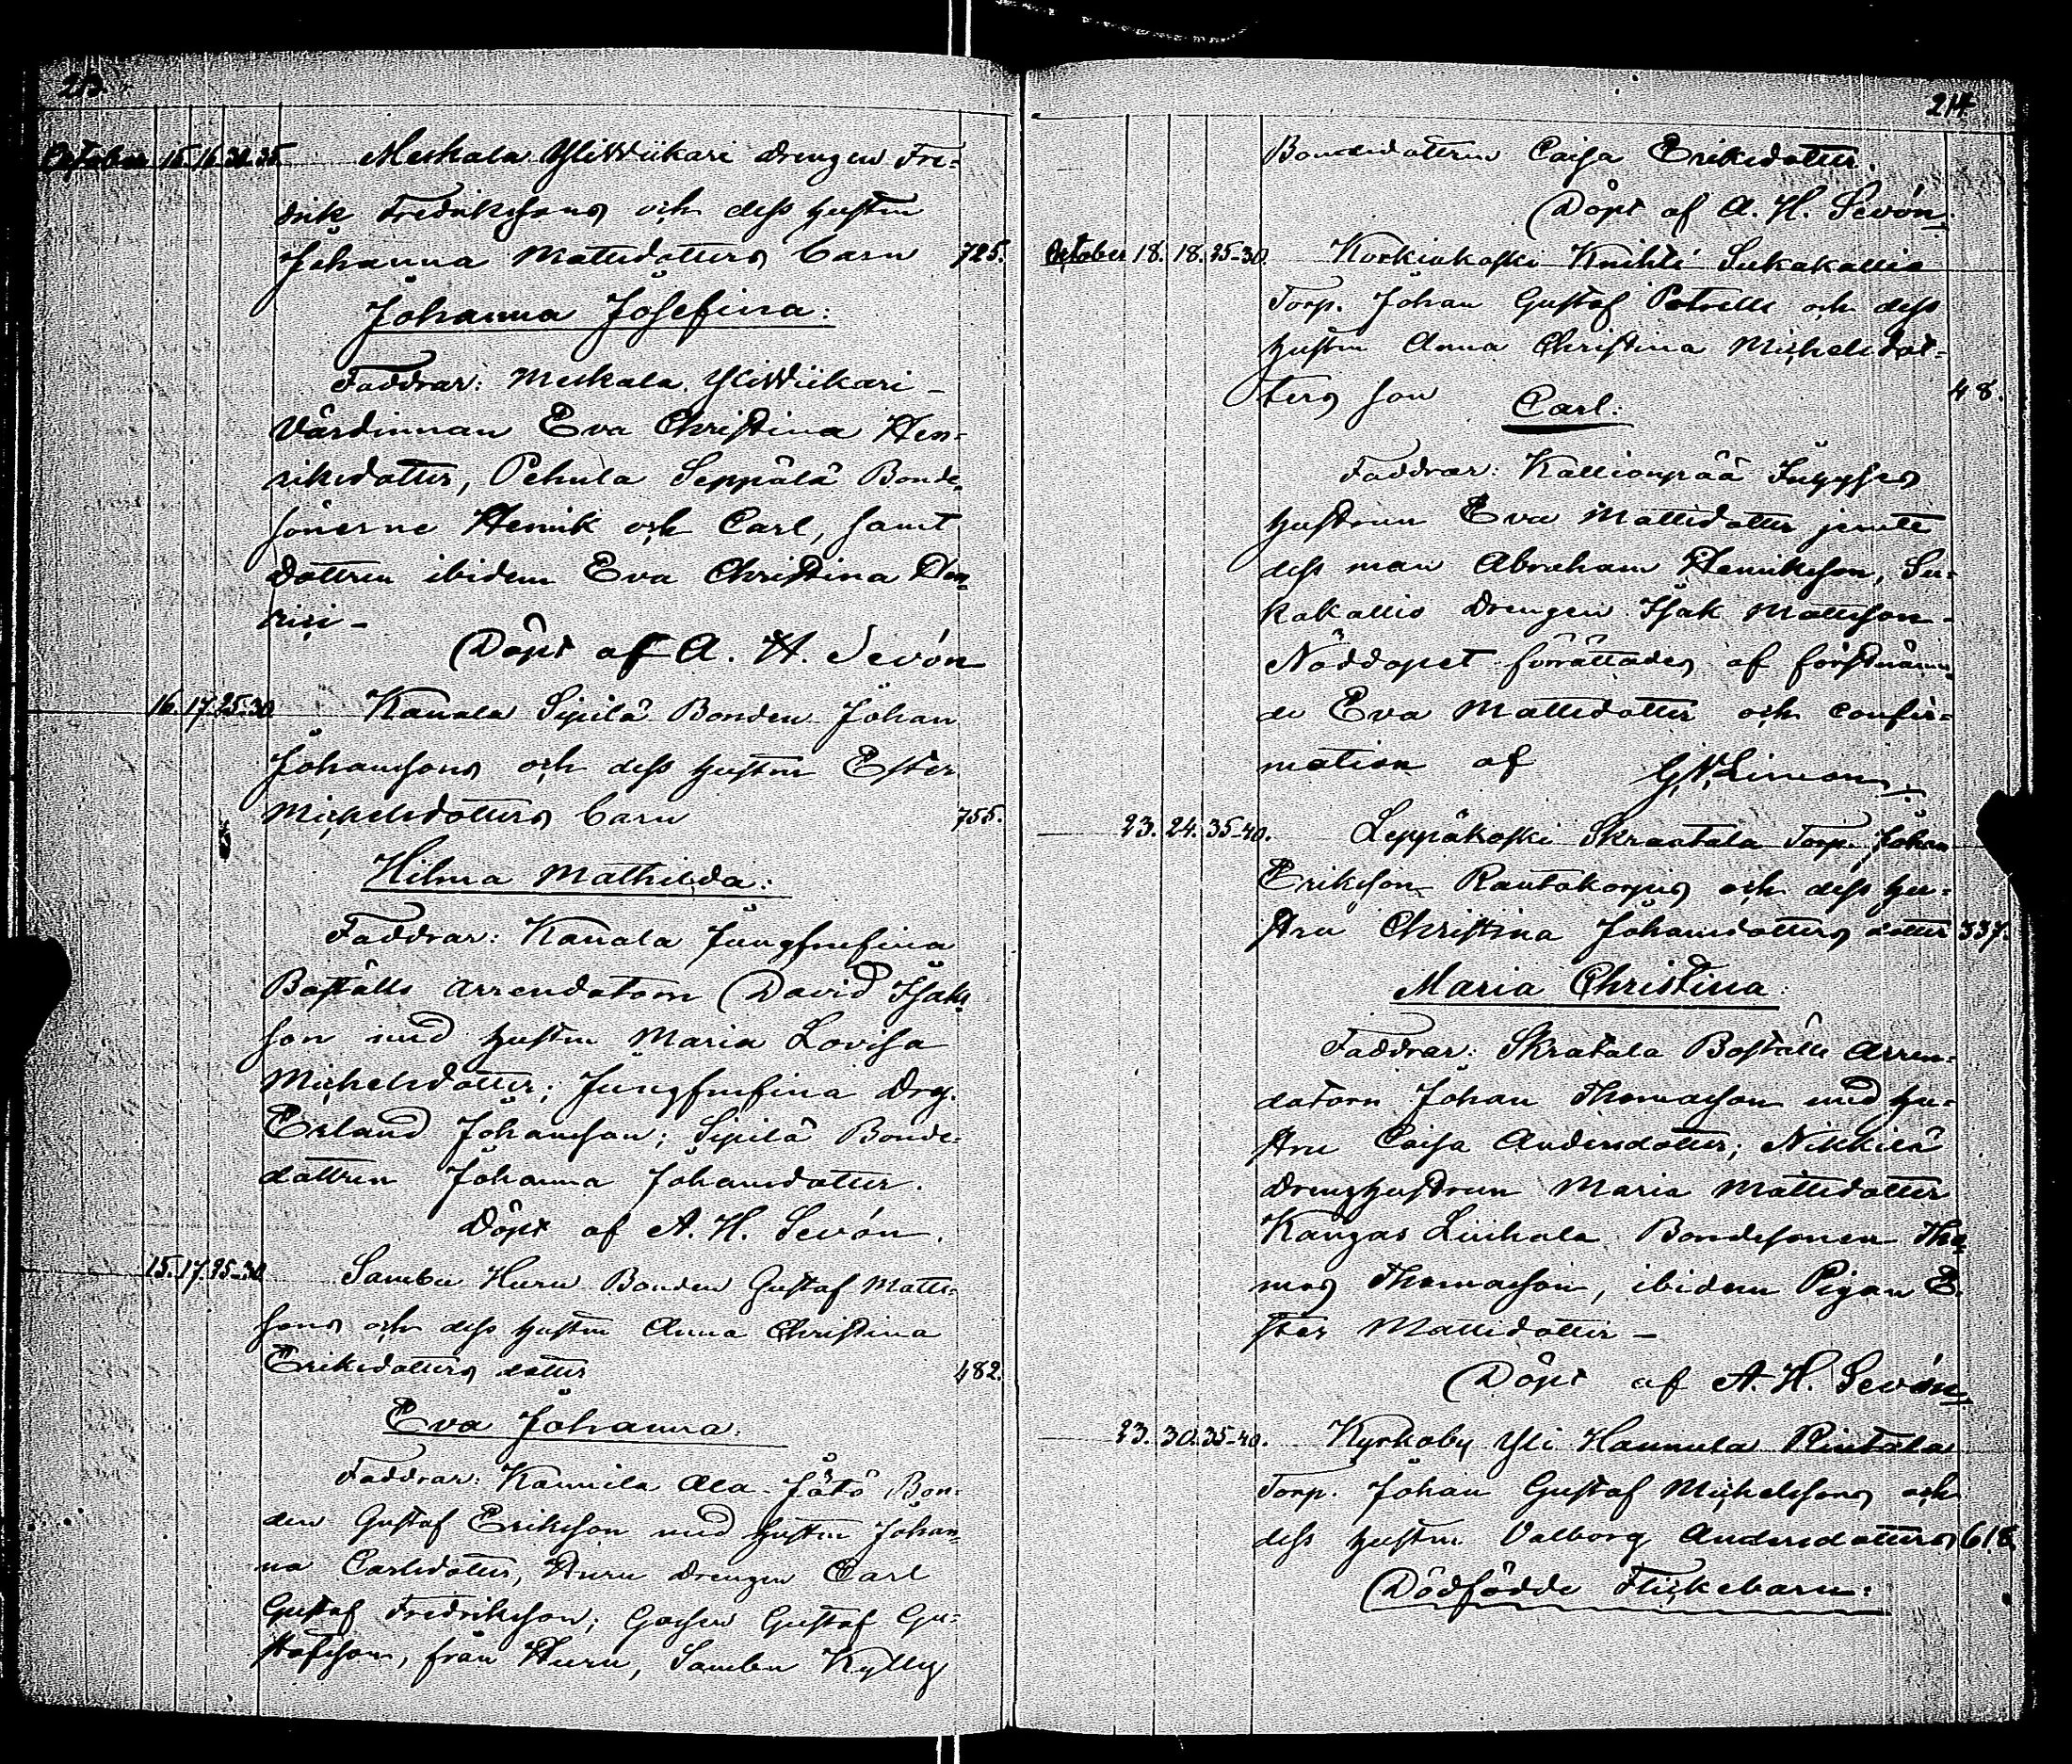 213.
October 15. 16. 30.35. Meskala YliWiikari drengen Fre-
drik Fredrikssons och dess hustru
Johanna Mattsdotters barn 725.
Johanna Josefina:
Faddrar: Meskala YliWiikari -
Värdinnan Eva Christina Hen-
riksdotter, Pehula Seppälä Bonde-
sönerne Henrik och Carl, samt
dottren ibidem Eva Christina Hen-
rici -
Döpt af A. H. Sevón
16. 17. 25-30 Kauala Sipilä Bonden Johan
Johanssons och dess hustru Ester
Michelsdotters barn 755.
Hilma Mathilda:
Faddrar: Kauala Jungfrufina
Boställs arrendatorn David Isaks
son med hustru Maria Lovisa
Michelsdotter; Jungfrufina Drg.
Erland Johansson; Sipilä Bonde-
dottren Johanna Johansdotter.
Döpt af A. H. Sevón.
15. 17. 25-30 Sambu Huru Bonden Gustaf Matts-
sons och dess hustru Anna Christina
Eriksdotters dotter 482.
Eva Johanna.
Faddrar: Kannila Ala-Jätö Bon-
den Gustaf Eriksson med hustru Johan-
na Carlsdotter, Huru drengen Carl
Gustaf Fredriksson; Gossen Gustaf Gu-
stafsson, från Huru, Sambu Kylli
214
Bondedottren Caisa Eriksdotter.
Döpt af A. H. Sevón.
October 18. 18. 25-30. Korkiakoski Knihti Sukakallio
Torp. Johan Gustaf Petrells och dess
hustru Anna Christina Michelsdot-
ters son 48.
Carl:
Faddrar: Kallionpää
hustrun Eva Mattsdotter jemte
dess man Abraham Henriksson, Su-
kakallio drengen Isak Mattsson -
Nöddopet förrättades af förstnämn-
de Eva Mattsdotter och confir-
mation af
23. 24. 35-40. Leppäkoski Skraatala Torp. Johan
Eriksson Rautakorpis och dess hu-
stru Christina Johansdotters dotter 337.
Maria Christina:
Faddrar: Skratala Boställs Arren-
datorn Johan Thomasson med hu-
stru Caisa Andersdotter; Nikkilä
drenghustrun Maria Mattsdotter
Kangas Liuhala Bondesonen Tho-
mas Thomasson, ibidem Pigan E-
ster Mattsdotter -
Döpt af A. H. Sevón.
23. 30. 35-40. Kyrkoby Yli Hannula Rintala
Torp. Johan Gustaf Michelssons och
dess hustru Valborg Andersdotters 618
Dödfödde Flickebarn: